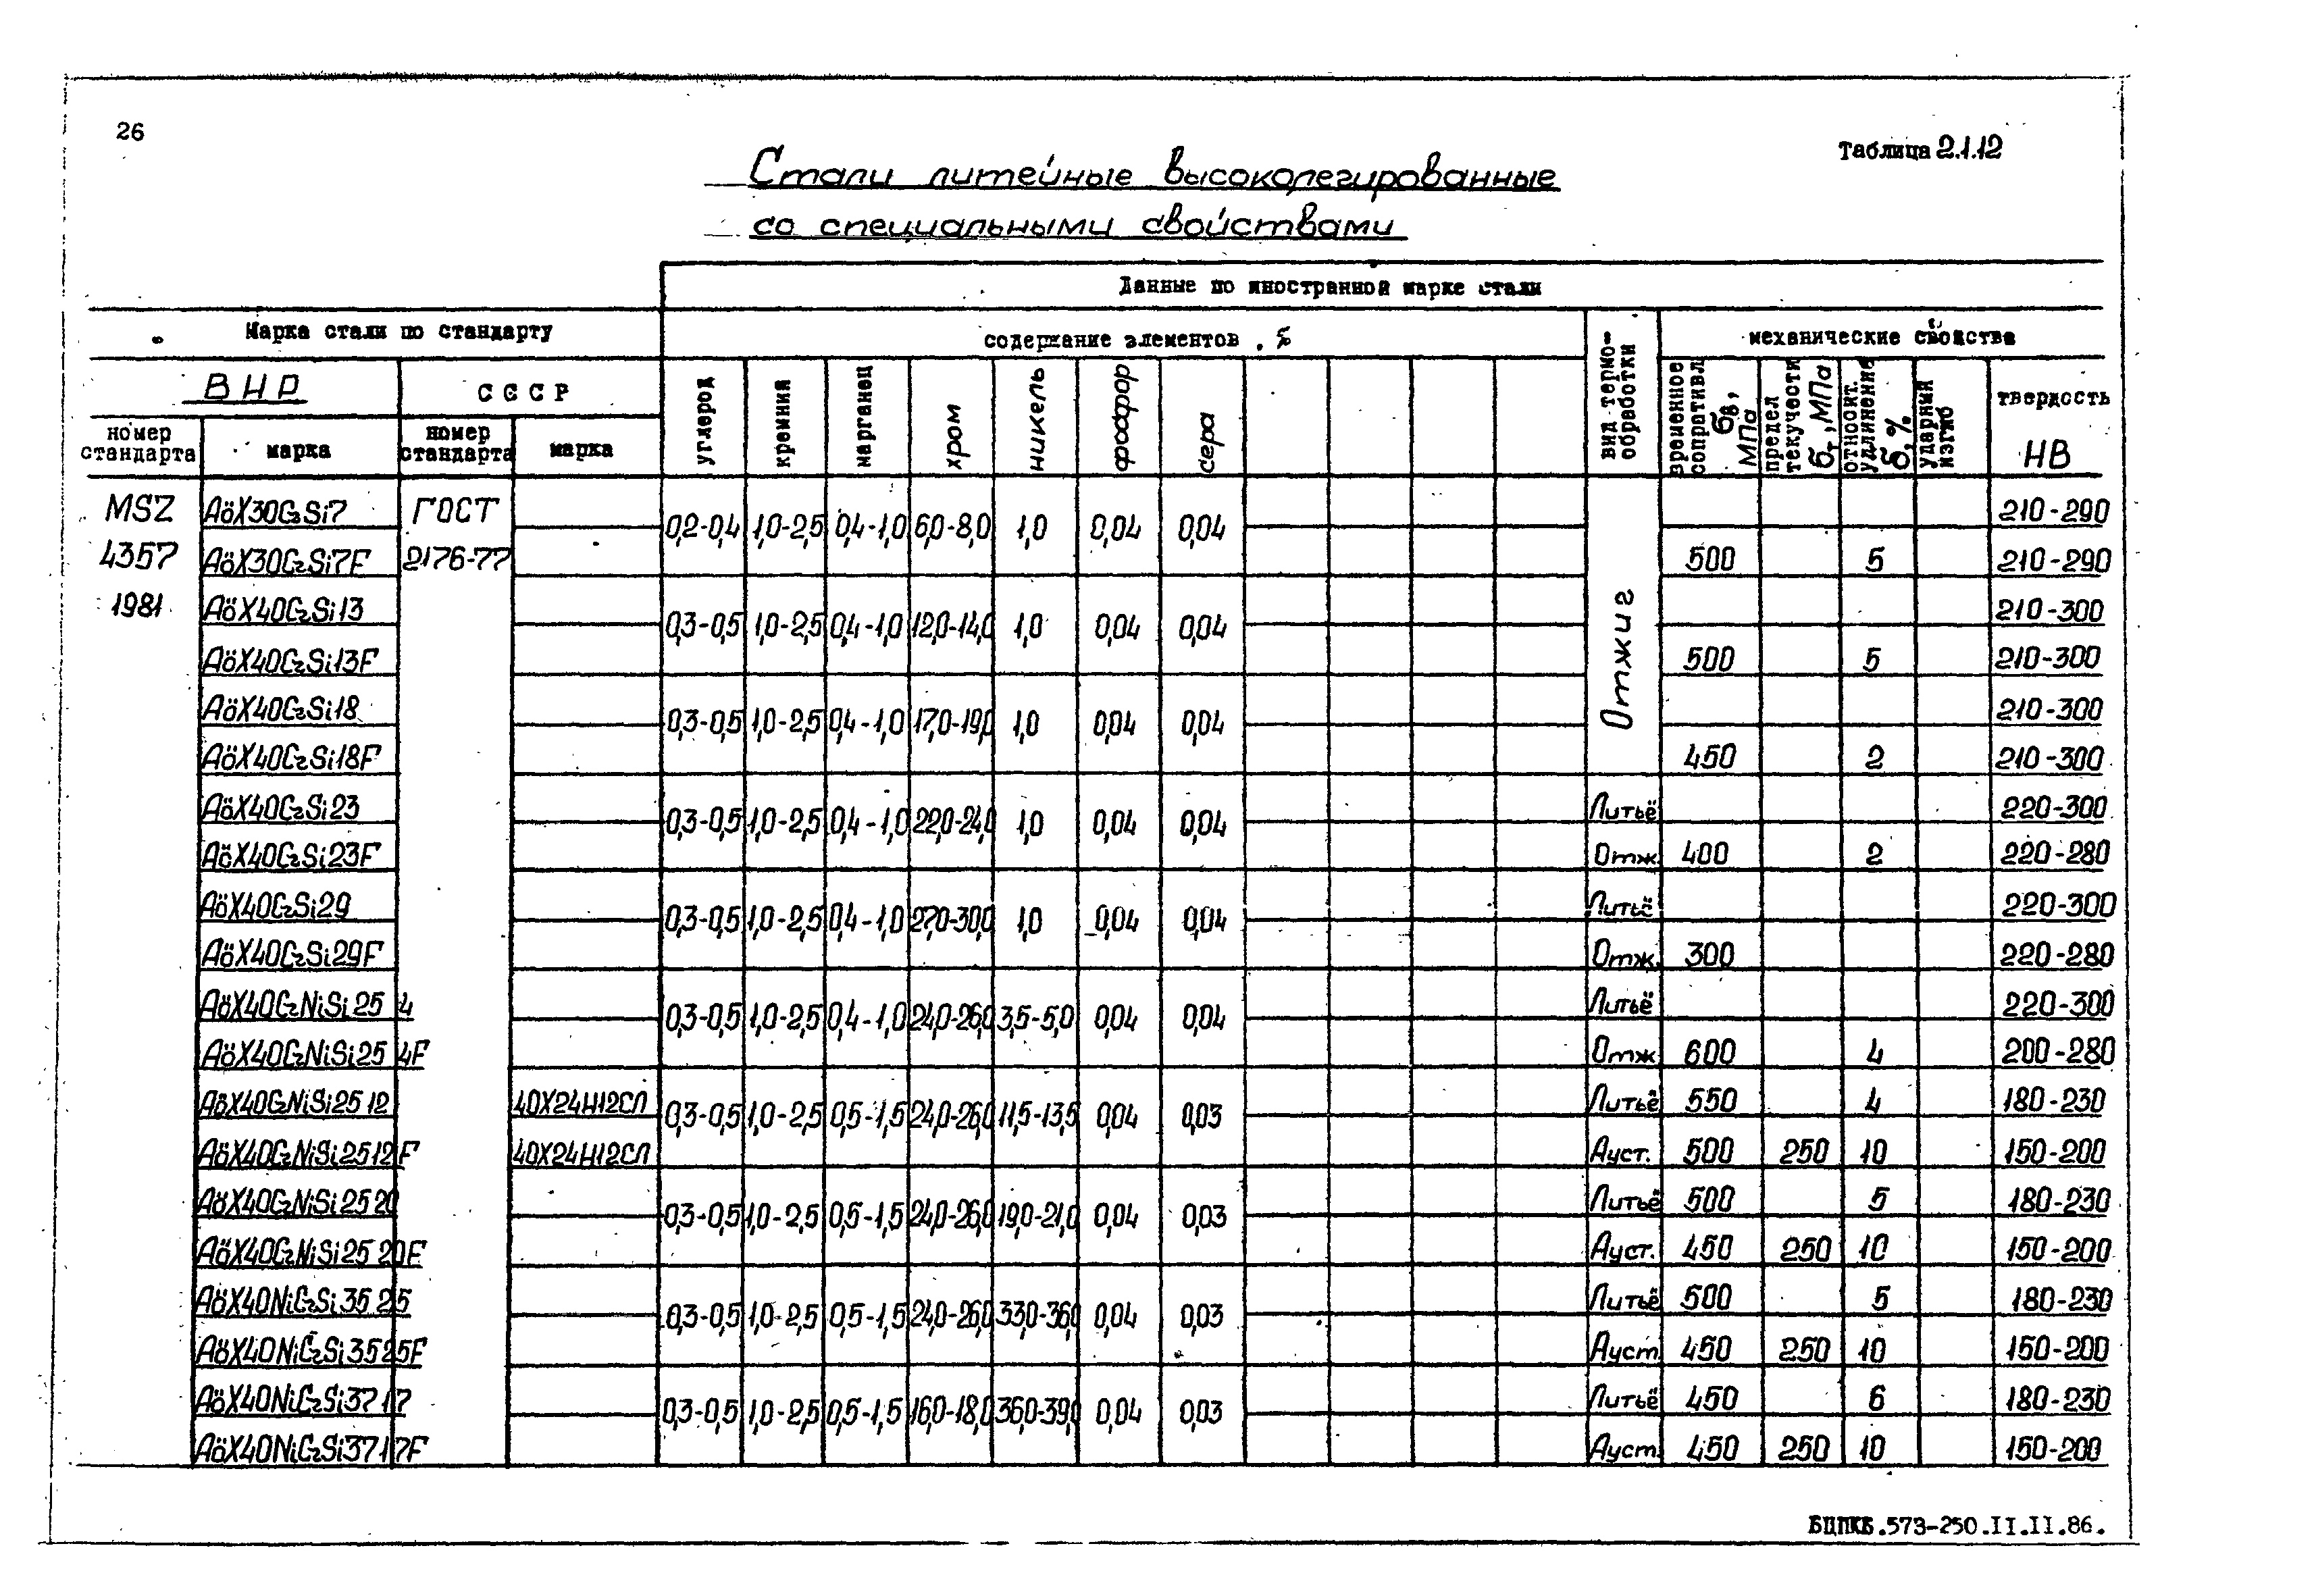 26
Таблица 2.1.12
Стали литейные высоколегированные
со специальными свойствами
Данные по иностранной марке стали
Марка стали по стандарту
содержание элементов, %
вид термо-обработки
механические свойства
ВНР
СССР
углерод
кремний
марганец
хром
никель
фосфор
сера
временное сопротивл. бв, МПа
предел текучести бт, МПа
относит. удлинение б, %
ударный изгиб
твердость НВ
номер стандарта
марка
номер стандарта
марка
MSZ 4357 1981
ГОСТ 2176-77
Отжиг
AöX30CrSi7 0,2-0,4 1,0-2,5 0,4-1,0 6,0-8,0 1,0 0,04 0,04 210-290
AöX30CrSi7F 500 5 210-290
AöX40CrSi13 0,3-0,5 1,0-2,5 0,4-1,0 12,0-14,0 1,0 0,04 0,04 210-300
AöX40CrSi13F 500 5 210-300
AöX40CrSi18 0,3-0,5 1,0-2,5 0,4-1,0 17,0-19,0 1,0 0,04 0,04 210-300
AöX40CrSi18F 450 2 210-300
AöX40CrSi23 0,3-0,5 1,0-2,5 0,4-1,0 22,0-24,0 1,0 0,04 0,04 Литьё 220-300
AöX40CrSi23F Отж. 400 2 220-280
AöX40CrSi29 0,3-0,5 1,0-2,5 0,4-1,0 27,0-30,0 1,0 0,04 0,04 Литьё 220-300
AöX40CrSi29F Отж. 300 220-280
AöX40CrNiSi25 4 0,3-0,5 1,0-2,5 0,4-1,0 24,0-26,0 3,5-5,0 0,04 0,04 Литьё 220-300
AöX40CrNiSi25 4F Отж 600 4 200-280
AöX40CrNiSi25 12 40Х24Н12СЛ 0,3-0,5 1,0-2,5 0,5-1,5 24,0-26,0 11,5-13,5 0,04 0,03 Литьё 550 4 180-230
AöX40CrNiSi25 12F 40Х24Н12СЛ Ауст. 500 250 10 150-200
AöX40CrNiSi25 20 0,3-0,5 1,0-2,5 0,5-1,5 24,0-26,0 19,0-21,0 0,04 0,03 Литьё 500 5 180-230
AöX40CrNiSi25 20F Ауст. 450 250 10 150-200
AöX40NiCrSi35 25 0,3-0,5 1,0-2,5 0,5-1,5 24,0-26,0 33,0-36,0 0,04 0,03 Литьё 500 5 180-230
AöX40NiCrSi35 25F Ауст. 450 250 10 150-200
AöX40NiCrSi37 17 0,3-0,5 1,0-2,5 0,5-1,5 16,0-18,0 36,0-39,0 0,04 0,03 Литьё 450 6 180-230
AöX40NiCrSi37 17F Ауст. 450 250 10 150-200
БЦПКБ.573-250.II.II.86.